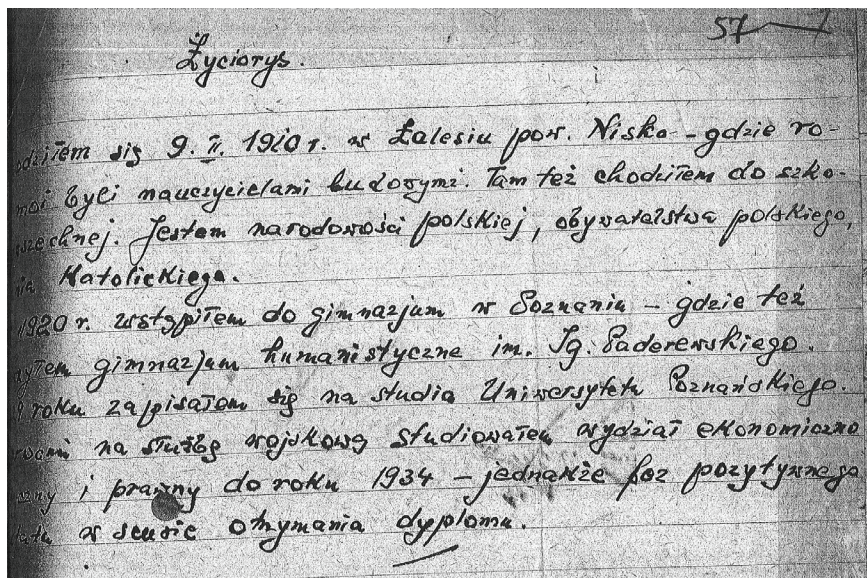 57
Życiorys.
dziłem się 9. II. 1910 r. w Zalesiu pow. Nisko - gdzie ro-
moi byli nauczycielami ludowymi. Tam też chodziłem do szko-
wszechnej. Jestem narodowości polskiej, obywatelstwa polskiego,
Katolickiego.
1920 r. wstąpiłem do gimnazjum w Poznaniu - gdzie też
gimnazjum humanistyczne im. Ig. Paderewskiego.
roku zapisałem się na studia Uniwersytetu Poznańskiego.
na służbę wojskową studiowałem wydział ekonomiczno
i prawny do roku 1934 - jednakże bez pozytywnego
w sensie otrzymania dyplomu.